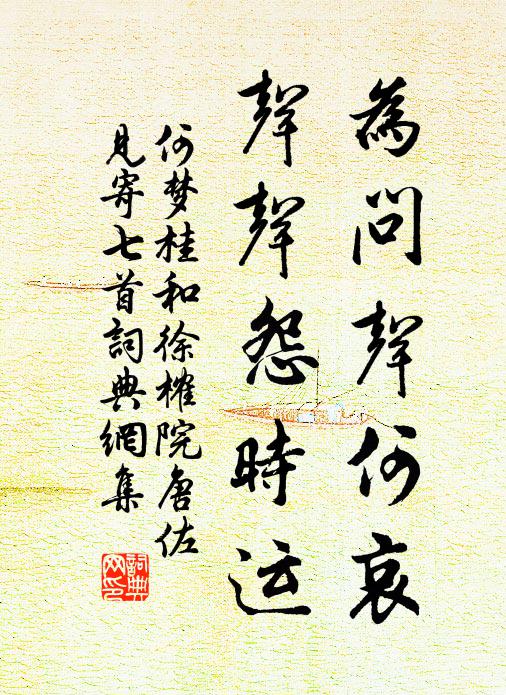 為問聲何哀
聲聲怨時运
何梦桂和徐榷院唐佐
見寄七首詞典網集
詞典
网印